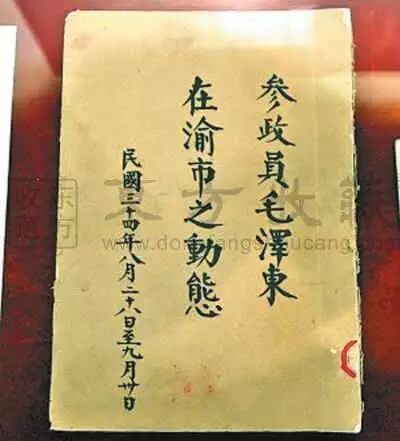 参政員毛澤東
在渝市之動態
民國三十四年八月二十八日至九月卅日
東方收藏
www.dongfangshoucang.com